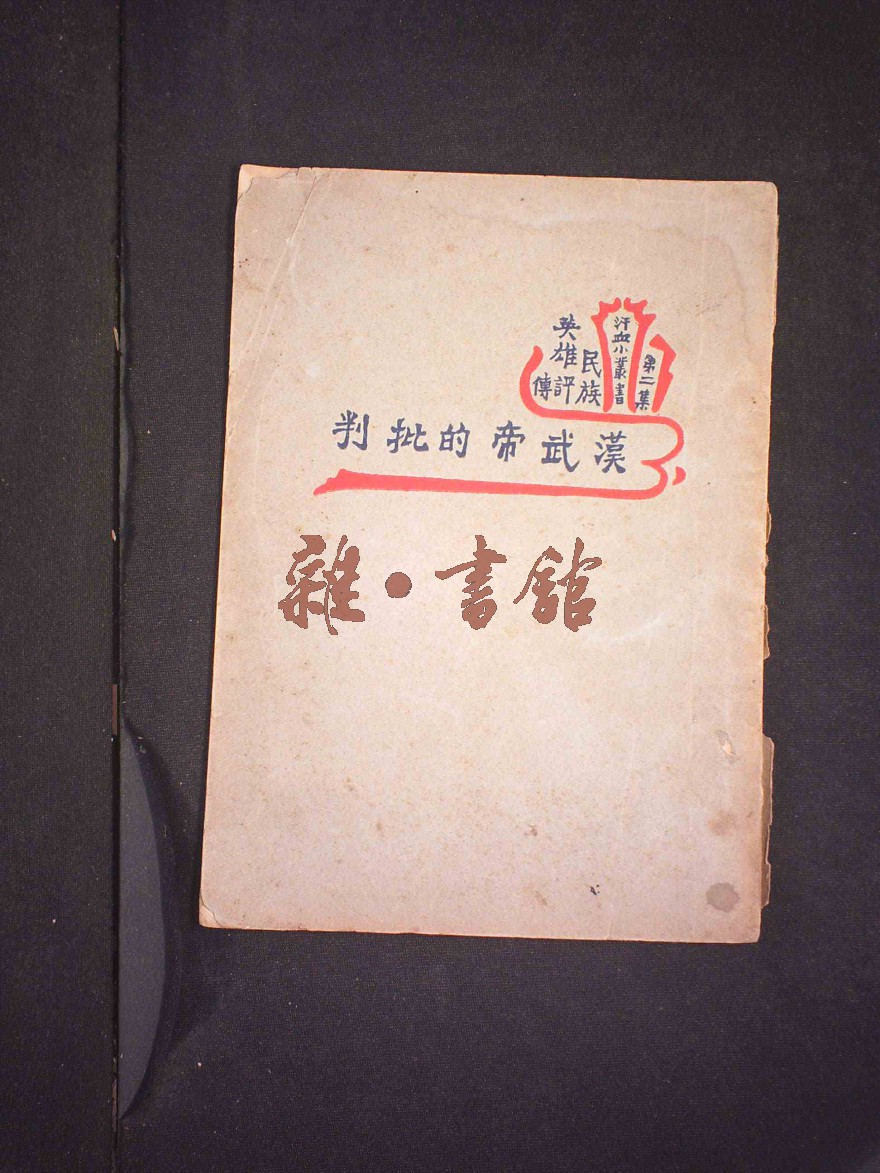 汗血小叢書
第二集
民族
英雄評傳
漢武帝的批判
雜•書館